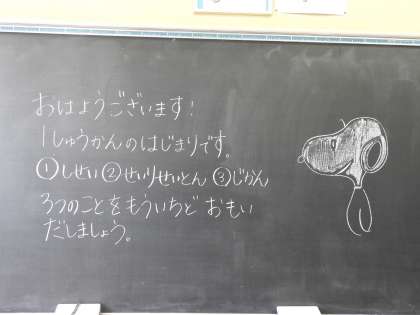 おはようございます!
1しゅうかんのはじまりです。
①しせい ②せいりせいとん ③じかん
3つのことをもういちど おもい
だしましょう。